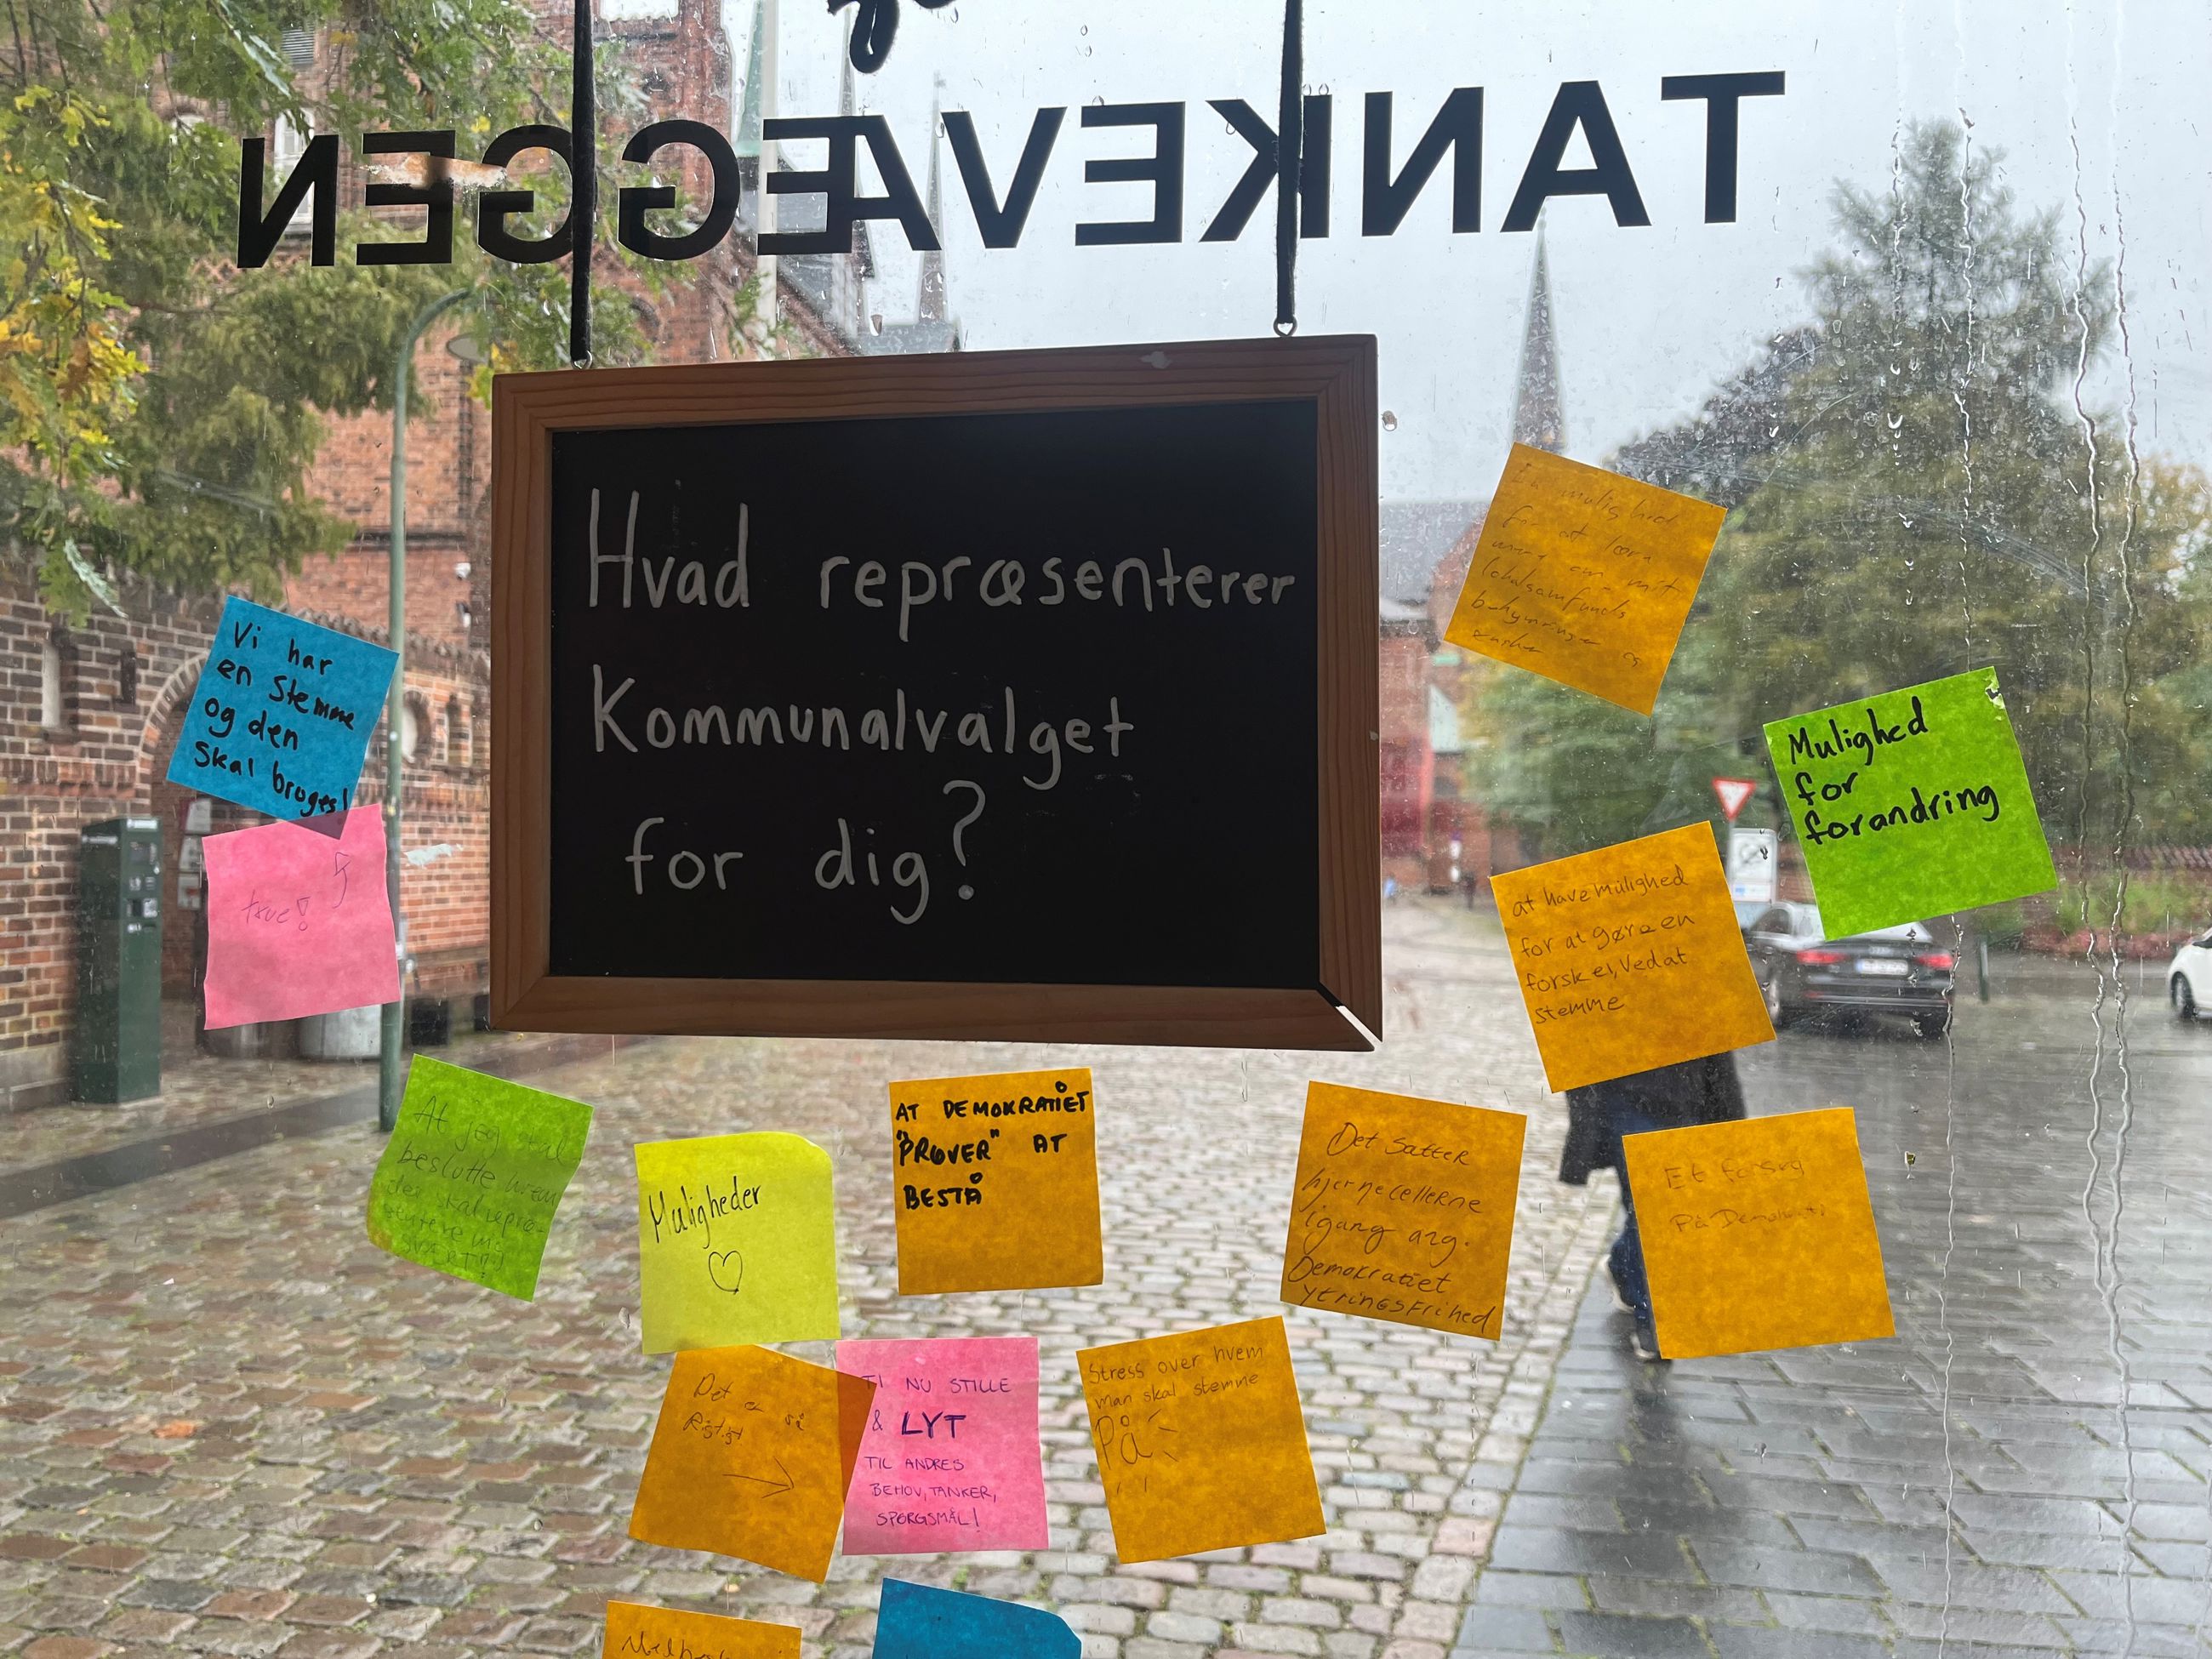 TANKEVÆGGEN
Hvad repræsenterer
Kommunalvalget
for dig?
Vi har
en stemme
og den
skal bruges!
true!
En mulighed
for at lære
mere om mit
lokalsamfunds
og
Mulighed
for
forandring
at have mulighed
for at gøre en
forskel, ved at
stemme
At jeg skal
beslutte hvem
der skal repræ-
sentere mig
SVÆRT!?!
Muligheder
♡
AT DEMOKRATIET
"PRØVER" AT
BESTÅ
Det sætter
hjernecellerne
igang ang.
Demokratiet
Ytringsfrihed
Et forsøg
På Demokrati
Det er så
Rigtigt
→
TI NU STILLE
& LYT
TIL ANDRES
BEHOV, TANKER,
SPØRGSMÅL!
Stress over hvem
man skal stemme
På